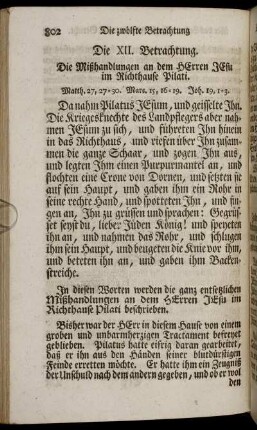 802 Die zwölfte Betrachtung
Die XII. Betrachtung.
Die Mißhandlungen an dem HErren JEsu
im Richthause Pilati.
Matth. 27, 27-30. Marc. 15, 16-19. Joh. 19, 1-3.
Da nahm Pilatus JEsum, und geisselte Ihn.
Die Kriegesknechte des Landpflegers aber nah-
men JEsum zu sich, und führeten Ihn hinein
in das Richthaus, und riefen über Ihn zusam-
men die ganze Schaar, und zogen Ihn aus,
und legten Ihm einen Purpurmantel an, und
flochten eine Crone von Dornen, und setzten sie
auf sein Haupt, und gaben ihm ein Rohr in
seine rechte Hand, und spotteten Ihn, und fin-
gen an, Ihn zu grüssen und sprachen: Gegrüs-
set seyst du, lieber Jüden König! und speyeten
ihn an, und nahmen das Rohr, und schlugen
ihm sein Haupt, und beugeten die Knie vor ihm,
und beteten ihn an, und gaben ihm Backen-
streiche.
In diesen Worten werden die ganz entsetzlichen
Mißhandlungen an dem HErren JEsu im
Richthause Pilati beschrieben.
Bisher war der HErr in diesem Hause von einem
groben und unbarmherzigen Tractament befreyet
geblieben. Pilatus hatte eifrig daran gearbeitet,
daß er ihn aus den Händen seiner blutdürstigen
Feinde erretten möchte. Er hatte ihm ein Zeugniß
der Unschuld nach dem andern gegeben, und ob er wol
den